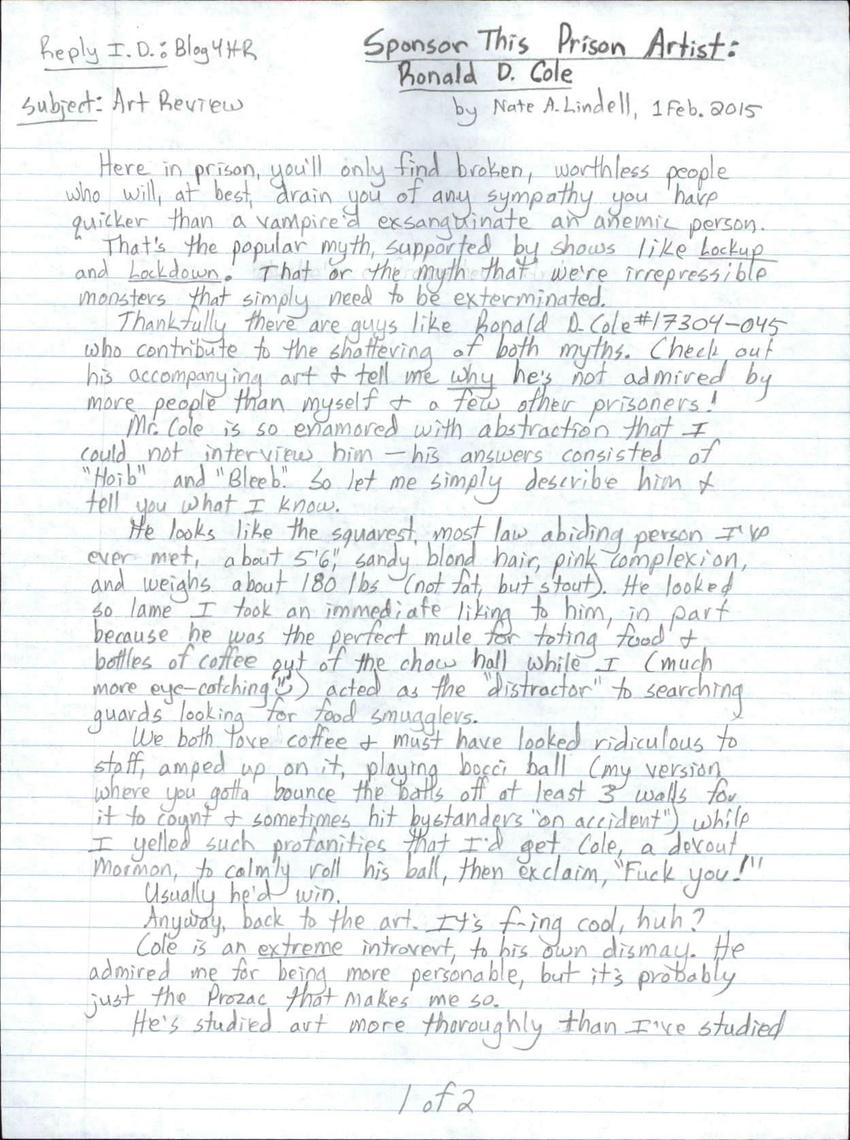 Reply I.D.: Blog4HR
Sponsor This Prison Artist:
Ronald D. Cole
Subject: Art Review
by Nate A. Lindell, 1 Feb. 2015
Here in prison, you'll only find broken, worthless people
who will, at best, drain you of any sympathy you have
quicker than a vampire'd exsanguinate an anemic person.
That's the popular myth, supported by shows like Lockup
and Lockdown. That or the myth that we're irrepressible
monsters that simply need to be exterminated.
Thankfully there are guys like Ronald D. Cole #17304-045
who contribute to the shattering of both myths. Check out
his accompanying art & tell me why he's not admired by
more people than myself & a few other prisoners!
Mr. Cole is so enamored with abstraction that I
could not interview him — his answers consisted of
"Hoib" and "Bleeb." So let me simply describe him &
tell you what I know.
He looks like the squarest, most law abiding person I've
ever met, about 5'6", sandy blond hair, pink complexion,
and weighs about 180 lbs (not fat, but stout). He looked
so lame I took an immediate liking to him, in part
because he was the perfect mule for toting food &
bottles of coffee out of the chow hall while I (much
more eye-catching) acted as the "distractor" to searching
guards looking for food smugglers.
We both love coffee & must have looked ridiculous to
staff, amped up on it, playing bocci ball (my version
where you gotta bounce the balls off at least 3 walls for
it to count & sometimes hit bystanders "on accident") while
I yelled such profanities that I'd get Cole, a devout
Mormon, to calmly roll his ball, then exclaim, "Fuck you!"
Usually he'd win.
Anyway, back to the art. It's f-ing cool, huh?
Cole is an extreme introvert, to his own dismay. He
admired me for being more personable, but it's probably
just the Prozac that makes me so.
He's studied art more thoroughly than I've studied
1 of 2